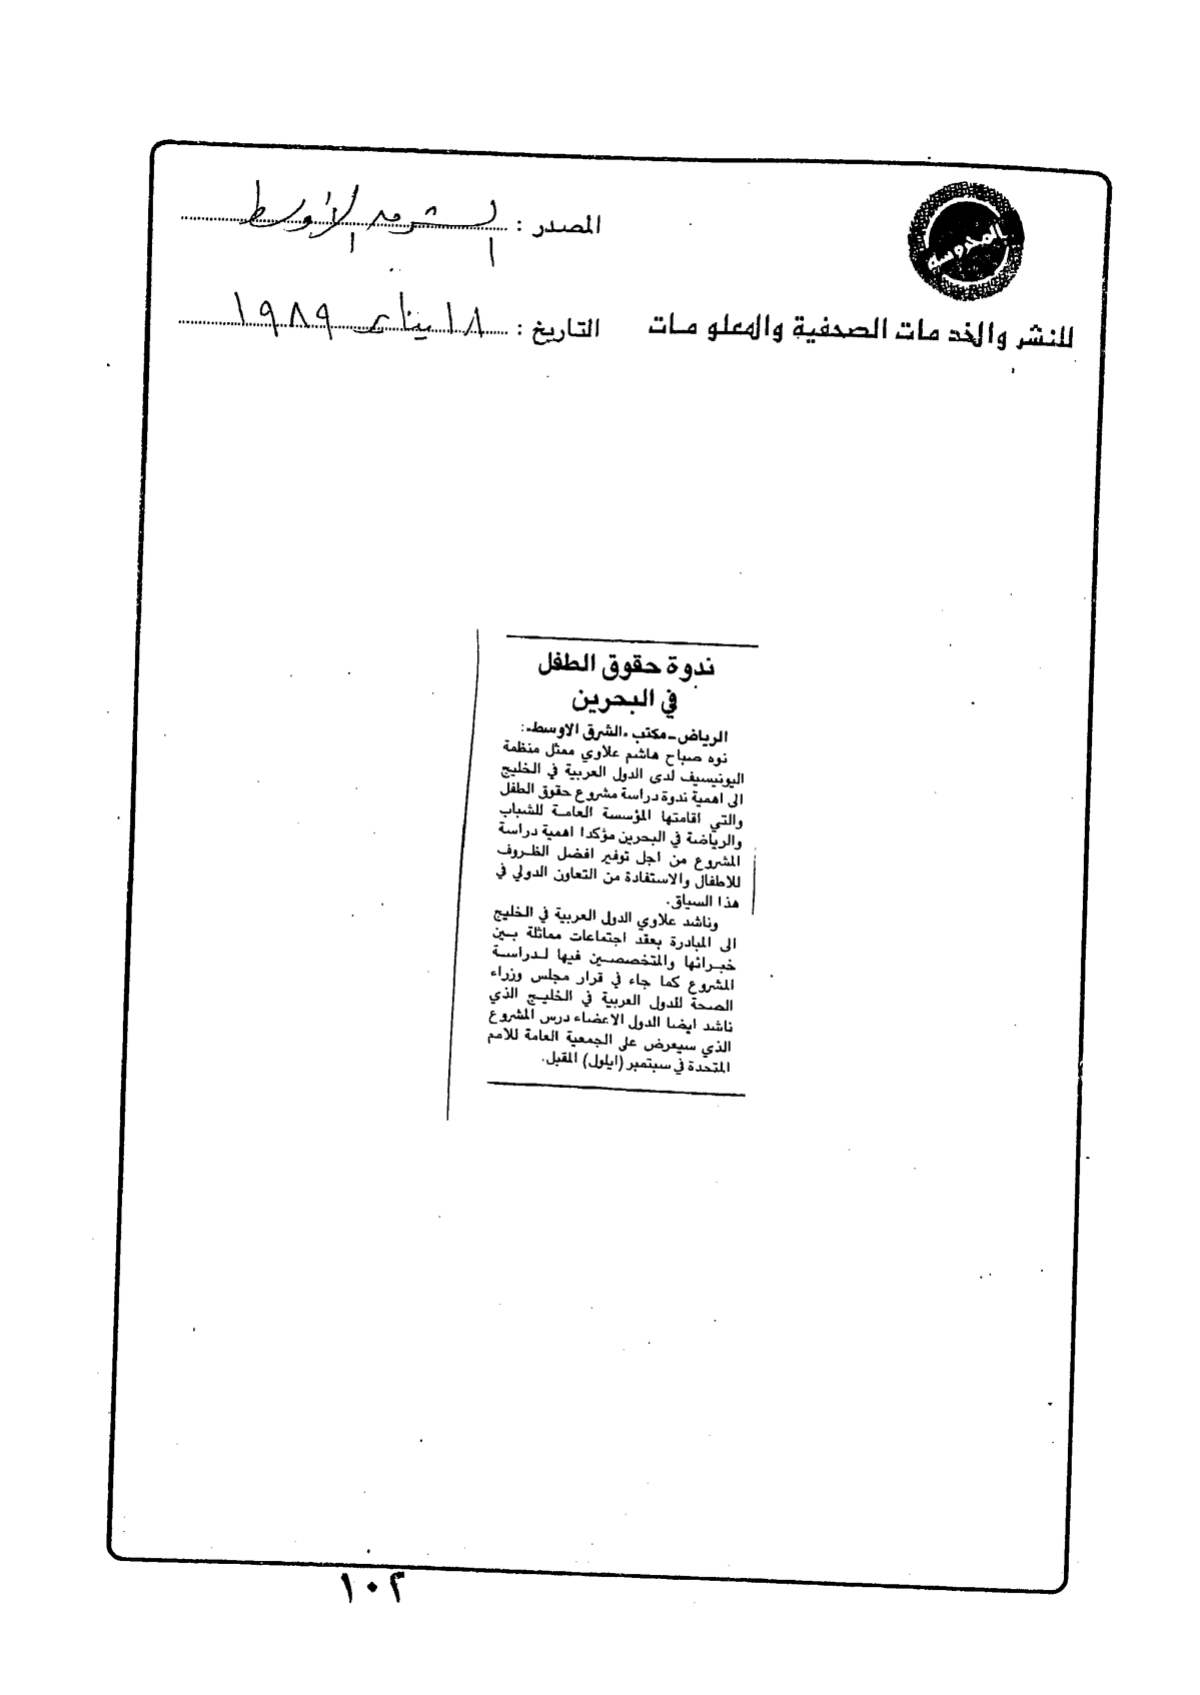 المحروسة
المصدر : الشرق الأوسط
للنشر والخدمات الصحفية والمعلومات
التاريخ : ١٨ يناير ١٩٨٩
ندوة حقوق الطفل
في البحرين
الرياض ـ مكتب «الشرق الاوسط» :
نوه صباح هاشم علاوي ممثل منظمة
اليونيسيف لدى الدول العربية في الخليج
الى اهمية ندوة دراسة مشروع حقوق الطفل
والتي اقامتها المؤسسة العامة للشباب
والرياضة في البحرين مؤكدا اهمية دراسة
المشروع من اجل توفير افضل الظروف
للاطفال والاستفادة من التعاون الدولي في
هذا السياق.
وناشد علاوي الدول العربية في الخليج
الى المبادرة بعقد اجتماعات مماثلة بين
خبرائها والمتخصصين فيها لدراسة
المشروع كما جاء في قرار مجلس وزراء
الصحة للدول العربية في الخليج الذي
ناشد ايضا الدول الاعضاء درس المشروع
الذي سيعرض على الجمعية العامة للامم
المتحدة في سبتمبر (ايلول) المقبل.
١٠٢